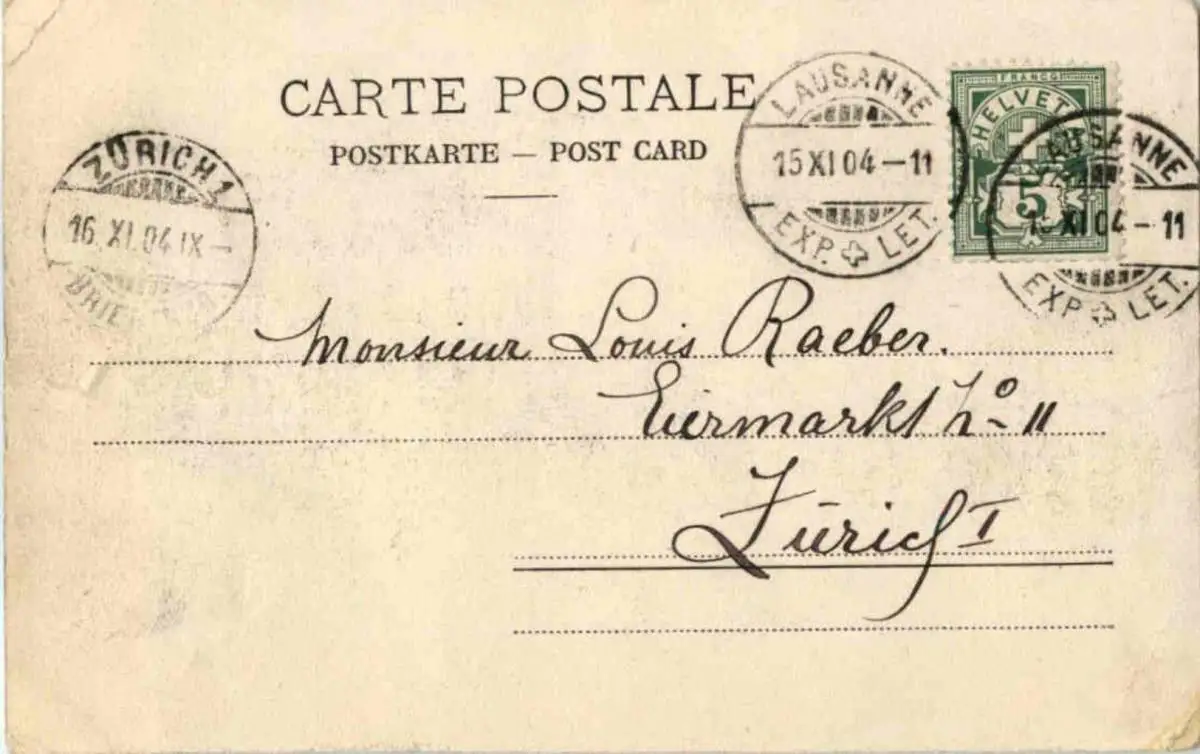 CARTE POSTALE
POSTKARTE — POST CARD
ZÜRICH 1
16. XI. 04. IX –
BRIE
LAUSANNE
15 XI 04 – 11
EXP. LET.
FRANCO
HELVET
5
LAUSANNE
15 XI 04 – 11
EXP. LET.
Monsieur Louis Raeber.
Eiermarkt No 11
Zürich I